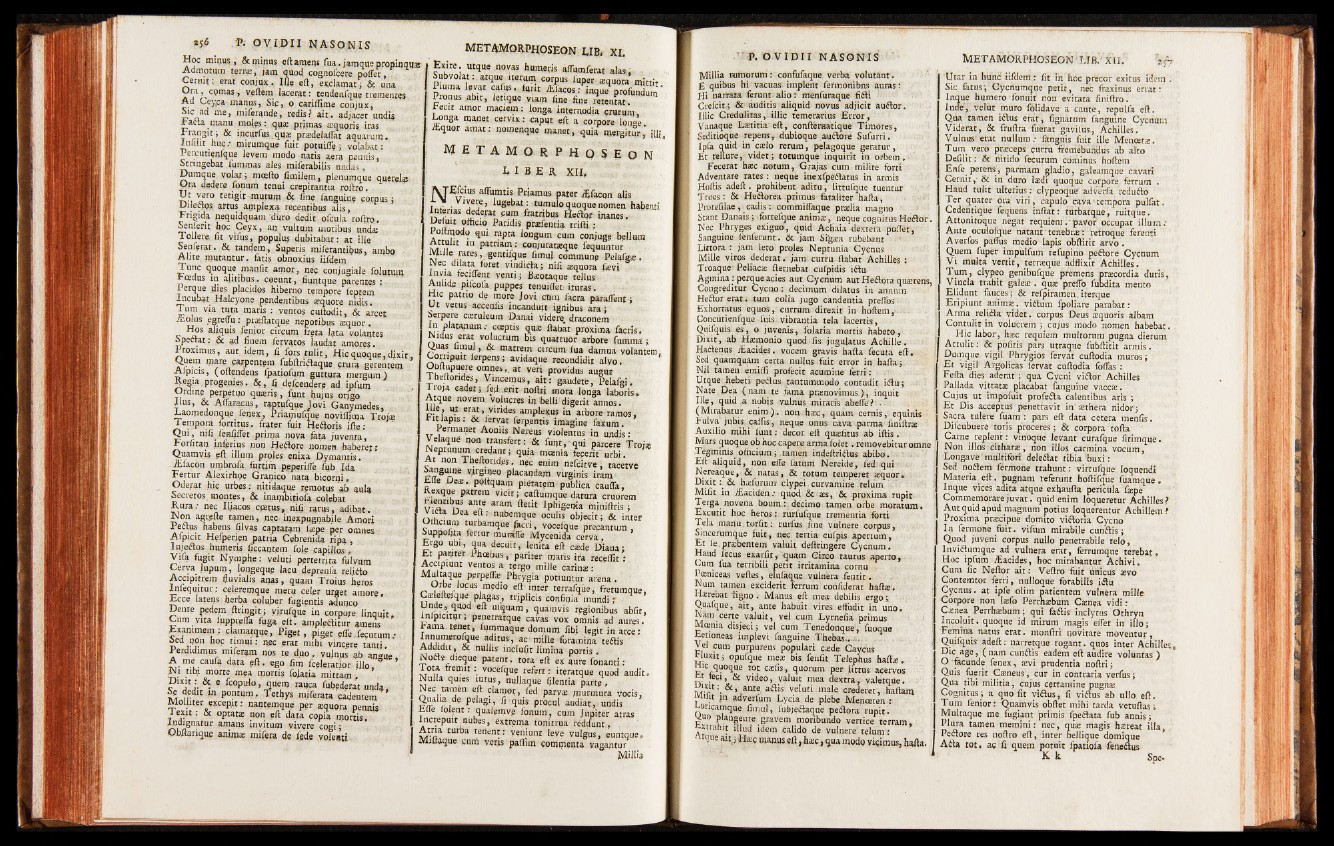 256 P. OVIDII NASONIS
Hoc minus, & minus est amens sua. jamque propinquæ
Admotum terræ, jam quod cognoscere posset,
Cernit: erat conjux. Ille est, exclamat; & una
Ora, comas, vestem lacerat: tendensque trementes
Ad Ceyca manus, Sic, o carissime conjux,
Sic ad me, miserande, redis? ait. adjacet undis
Facta manu moles: quæ primas æquoris iras
Frangit; & incursus quæ prædelassat aquarum.
Insilit huc: mirumque fuit potuisse; volabat:
Percutiensque levem modo natis aera pennis,
Stringebat summas ales miserabilis undas.
Dumque volat; mœsto similem, plenumque querelæ
Ora dedere sonum tenui crepitantia rostro.
Ut vero tetigit mutum & sine sanguine corpus;
Dilectos artus amplexa recentibus alis,
Frigida nequidquam duro dedit oscula rostro.
Senserit hoc Ceyx, an vultum motibus undæ
Tollere sit visus, populus dubitabat: at ille
Senserat. & tandem, Superis miserantibus, ambo
Alite mutantur. fatis obnoxius iisdem
Tunc quoque mansit amor, nec conjugiale solutum
Fœdus in alitibus. coeunt, fiuntque parentes:
Perque dies placidos hiberno tempore septem
Incubat Halcyone pendentibus æquore nidis.
Tum via tuta maris: ventos custodit, & arcet
Æolus egressu: præstatque nepotibus æquor.
Hos aliquis senior circum freta lata volantes
Spectat: & ad finem servatos laudat amores.
Proximus, aut idem, si fors tulit, Hic quoque, dixit,
Quem mare carpentem substrictaque crura gerentem
Aspicis, (ostendens spatiosum guttura mergum)
Regia progenies. &, si descendere ad ipsum
Ordine perpetuo quæris, sunt hujus origo
Ilus, & Assaracus, raptusque Jovi Ganymedes,
Laomedonque senex, Priamusque novissima Trojæ
Tempora sortitus. frater fuit Hectoris iste:
Qui, nisi sensisset prima nova fata juventa,
Forsitan inferius non Hectore nomen haberet:
Quamvis est illum proles enixa Dymantis.
Æsacon umbrosa furtim peperisse sub Ida
Fertur Alexirhoe Granico nata bicorni.
Oderat hic urbes: nitidaque remotus ab aula
Secretos montes, & inambitiosa colebat
Rura: nec Iliacos cœtus, nisi rarus, adibat.
Non agreste tamen, nec inexpugnabile Amori
Pectus habens silvas captatam sæpe per omnes
Aspicit Hesperien patria Cebrenida ripa,
Injectos humeris siccantem sole capillos.
Visa fugit Nymphe: veluti perterrita fulvum
Cerva lupum, longeque lacu deprensa relicto
Accipitrem fluvialis anas, quam Troius heros
Insequitur: celeremque metu celer urget amore.
Ecce latens herba coluber fugientis adunco
Dente pedem stringit; virusque in corpore linquit.
Cum vita suppressa fuga est. amplectitur amens
Exanimem: clamatque, Piget, piget esse secutum:
Sed non hoc timui: nec erat mihi vincere tanti.
Perdidimus miseram nos te duo. vulnus ab angue,
A me causa data est. ego sim sceleratior illo,
Ni tibi morte mea mortis solatia mittam.
Dixit: & e scopulo, quem rauca subederat unda,
Se dedit in pontum. Tethys miserata cadentem
Molliter excepit: nantemque per æquora pennis
Texit: & optatæ non est data copia mortis.
Indignatur amans invitum vivere cogi;
Obstarique animæ misera de sede volenti
METAMORPHOSEON LIB. XI.
Exire. utque novas humeris assumserat alas,
Subvolat: atque iterum corpus super æquora mittit.
Pluma levat casus. furit Æsacos: inque profundum
Pronus abit, letique viam sine fine retentat.
Fecit amor maciem: longa internodia crurum,
Longa manet cervix: caput est a corpore longe.
Æquor amat: nomenque manet, quia mergitur, illi.
METAMORPHOSEON
LIBER XII.
NEscius assumtis Priamus pater Æsacon alis
Vivere, lugebat: tumulo quoque nomen habenti
Inferias dederat cum fratribus Hector inanes.
Defuit officio Paridis præsentia tristi:
Postmodo qui rapta longum cum conjuge bellum
Attulit in patriam: conjuratæque sequuntur
Mille rates, gentisque simul commune Pelasgæ.
Nec dilata foret vindicta; nisi æquora sævi
Invia fecissent venti; Bœotaque tellus
Aulide piscosa puppes tenuisset ituras.
Hic patrio de more Jovi cum sacra parassent;
Ut vetus accensis incanduit ignibus ara;
Serpere cæruleum Danai videre draconem
In platanum: cœptis quæ stabat proxima sacris.
Nidus erat volucrum bis quattuor arbore summa;
Quas simul, & matrem circum sua damna volantem,
Corripuit serpens; avidaque recondidit alvo.
Obstupuere omnes. at veri providus augur
Thestorides, Vincemus, ait: gaudete, Pelasgi.
Troja cadet; sed erit nostri mora longa laboris.
Atque novem volucres in belli digerit annos.
Ille, ut erat, virides amplexus in arbore ramos,
Fit lapis: & servat serpentis imagine saxum.
Permanet Aoniis Nereus violentus in undis:
Velaque non transfert: & sunt, qui parcere Trojæ
Neptunum credant; quia mœnia fecerit urbi.
At non Thestorides. nec enim nescitve, tacetve
Sanguine virgineo placandam virginis iram
Esse Deæ. postquam pietatem publica causa,
Rexque patrem vicit; castumque datura cruorem
Flentibus ante aram stetit Iphigenia ministris;
Victa Dea est: nubemque oculis objecit; & inter
Officium turbamque sacri, vocesque precantum,
Supposita fertur mutasse Mycenida cerva.
Ergo ubi, qua decuit, lenita est cæde Diana;
Et pariter Phœbus, pariter maris ira recessit:
Accipiunt ventos a tergo mille carinæ:
Multaque perpessæ Phrygia potiuntur arena.
Orbe locus medio est inter terrasque, fretumque,
Cælestesque plagas, triplicis confinia mundi;
Unde, quod est usquam, quamvis regionibus absit,
Inspicitur; penetratque cavas vox omnis ad aures.
Fama tenet, summaque domum sibi legit in arce:
Innumerosque aditus, ac mille foramina tectis
Addidit, & nullis inclusit limina portis.
Nocte dieque patent. tota est ex aure sonanti:
Tota fremit: vocesque refert: iteratque quod audit.
Nulla quies intus, nullaque silentia parte.
Nec tamen est clamor, sed parvæ murmura vocis,
Qualia de pelagi, si quis procul audiat, undis
Esse solent: qualemve sonum, cum Jupiter atras
Increpuit nubes, extrema tonitrua reddunt.
Atria turba tenent: veniunt leve vulgus, euntque,
Mistaque cum veris passim commenta vagantur
Millia
P. OVIDII NASONIS
Millia rumorum: confusaque verba volutant.
E quibus hi vacuas implent sermonibus aures:
Hi narrata ferunt alio: mensuraque ficti
Crescit; & auditis aliquid novus adjicit auctor.
Illic Credulitas, illic temerarius Error,
Vanaque Lætitia est, consternatique Timores,
Seditioque repens, dubioque auctore Susurri.
Ipsa quid in cælo rerum, pelagoque geratur,
Et tellure, videt; totumque inquirit in orbem.
Fecerat hæc notum, Grajas cum milite forti
Adventare rates: neque inexspectatus in armis
Hostis adest. prohibent aditu, littusque tuentur
Troes: & Hectorea primus fataliter hasta,
Protesilae, cadis: commissaque prælia magno
Stant Danais; fortesque animæ, neque cognitus Hector.
Nec Phryges exiguo, quid Achaia dextera posset,
Sanguine senserunt. & jam Sigæa rubebant
Littora: jam leto proles Neptunia Cycnus
Mille viros dederat. jam curru stabat Achilles:
Troaque Peliacæ sternebat cuspidis ictu
Agmina: perque acies aut Cycnum aut Hectora quærens,
Congreditur Cycno: decimum dilatus in annum
Hector erat. tum colla jugo candentia pressos
Exhortatus equos, currum direxit in hostem,
Concutiensque suis vibrantia tela lacertis,
Quisquis es, o juvenis, solatia mortis habeto,
Dixit, ab Hæmonio quod sis jugulatus Achille.
Hactenus Æacides. vocem gravis hasta secuta est.
Sed quamquam certa nullus fuit error in hasta;
Nil tamen emissi profecit acumine ferri:
Utque hebeti pectus tantummodo contudit ictu;
Nate Dea (nam te fama prænovimus), inquit
Ille, quid a nobis vulnus miraris abesse?
(Mirabatur enim). non hæc, quam cernis, equinis
Fulva jubis cassis, neque onus cava parma sinistræ
Auxilio mihi sunt: decor est quæsitus ab istis.
Mars quoque ob hoc capere arma solet. removebitur omne
Tegminis officium; tamen indestrictus abibo.
Est aliquid, non esse satum Nereide, sed qui
Nereaque, & natas, & totum temperet æquor.
Dixit: & hæsurum clypei curvamine telum
Misit in Æaciden: quod & æs, & proxima rupit
Terga novena boum: decimo tamen orbe moratum.
Excutit hoc heros: rursusque trementia forti
Tela manu torsit: cursus sine vulnere corpus,
Sincerumque fuit, nec tertia cuspis apertum,
Et se præbentem valuit destringere Cycnum.
Haud secus exarsit, quam Circo taurus aperto,
Cum sua terribili petit irritamina cornu
Pœniceas vestes, elusaque vulnera sentit.
Num tamen exciderit ferrum considerat hastæ.
Hærebat ligno. Manus est mea debilis ergo;
Quasque, ait, ante habuit vires effudit in uno.
Nam certe valuit, vel cum Lyrnesia primus
Mœnia disjeci; vel cum Tenedonque, suoque
Eetioneas implevi sanguine Thebas,
Vel cum purpureus populari cæde Caycus
Fluxit; opusque meæ bis sensit Telephus hastæ.
Hic quoque tot cæsis, quorum per littus acervos
Et feci, & video, valuit mea dextra, valetque.
Dixit: &, ante actis veluti male crederet, hastam
Misit in adversum Lycia de plebe Menœten:
Loricamque simul, subjectaque pectora rupit.
Quo plangente gravem moribundo vertice terram,
Extrahit illud idem calido de vulnere telum:
Atque ait; Hæc manus est, hæc, qua modo vicimus, hasta.
METAMORPHOSEON LIB. XII. 257
Utar in hunc iisdem: sit in hoc precor exitus idem.
Sic fatus; Cycnumque petit, nec fraxinus errat:
Inque humero sonuit non evitata sinistro.
Inde, velut muro solidave a caute, repulsa est.
Qua tamen ictus erat, signatum sanguine Cycnum
Viderat, & frustra fuerat gavisus, Achilles.
Vulnus erat nullum: sanguis fuit ille Menœtæ.
Tum vero præceps curru fremebundus ab alto
Desilit: & nitido securum cominus hostem
Ense petens, parmam gladio, galeamque cavari
Cernit, & in duro lædi quoque corpore ferrum.
Haud tulit ulterius: clypeoque adversa reducto
Ter quater ora viri, capulo cava tempora pulsat.
Cedentique sequens instat: turbatque, ruitque.
Attonitoque negat requiem: pavor occupat illum:
Ante oculosque natant tenebræ: retroque ferenti
Aversos passus medio lapis obstitit arvo.
Quem super impulsum resupino pectore Cycnum
Vi multa vertit, terræque adflixit Achilles.
Tum, clypeo genibusque premens præcordia duris,
Vincla trahit galeæ. quæ presso subdita mento
Elidunt fauces; & respiramen iterque
Eripiunt animæ. victum spoliare parabat:
Arma relicta videt. corpus Deus æquoris albam
Contulit in volucrem; cujus modo nomen habebat.
Hic labor, hæc requiem multorum pugna dierum
Attulit: & positis pars utraque substitit armis.
Dumque vigil Phrygios servat custodia muros;
Et vigil Argolicas servat custodia fossas:
Festa dies aderat; qua Cycni victor Achilles
Pallada vittatæ placabat sanguine vaccæ.
Cujus ut imposuit prosecta calentibus aris;
Et Dis acceptus penetravit in æthera nidor;
Sacra tulere suam: pars est data cetera mensis.
Discubuere toris proceres; & corpora tosta
Carne replent: vinoque levant curasque sitimque.
Non illos citharæ, non illos carmina vocum,
Longave multifori delectat tibia buxi:
Sed noctem sermone trahunt: virtusque loquendi
Materia est. pugnam referunt hostisque suamque.
Inque vices adita atque exhausta pericula sæpe
Commemorare juvat. quid enim loqueretur Achilles?
Aut quid apud magnum potius loquerentur Achillem?
Proxima præcipue domito victoria Cycno
In sermone fuit. visum mirabile cunctis;
Quod juveni corpus nullo penetrabile telo,
Invictumque ad vulnera erat, ferrumque terebat.
Hoc ipsum Æacides, hoc mirabantur Achivi.
Cum sic Nestor ait: Vestro fuit unicus ævo
Contemtor ferri, nulloque forabilis ictu
Cycnus. at ipse olim patientem vulnera mille
Corpore non læso Perrhæbum Cænea vidi:
Cænea Perrhæbum; qui factis inclytus Othryn
Incoluit. quoque id mirum magis esset in illo;
Femina natus erat. monstri novitate moventur,
Quisquis adest: narretque rogant. quos inter Achilles,
Dic age, (nam cunctis eadem est audire voluntas)
O facunde senex, ævi prudentia nostri;
Quis fuerit Cæneus, cur in contraria versus;
Qua tibi militia, cujus certamine pugnæ
Cognitus; a quo sit victus, si victus ab ullo est.
Tum senior: Quamvis obstet mihi tarda vetustas;
Multaque me fugiant primis spectata sub annis;
Plura tamen memini: nec, quæ magis hæreat illa,
Pectore res nostro est, inter bellique domique
Acta tot. ac si quem potuit spatiosa senectus
K k Spe-